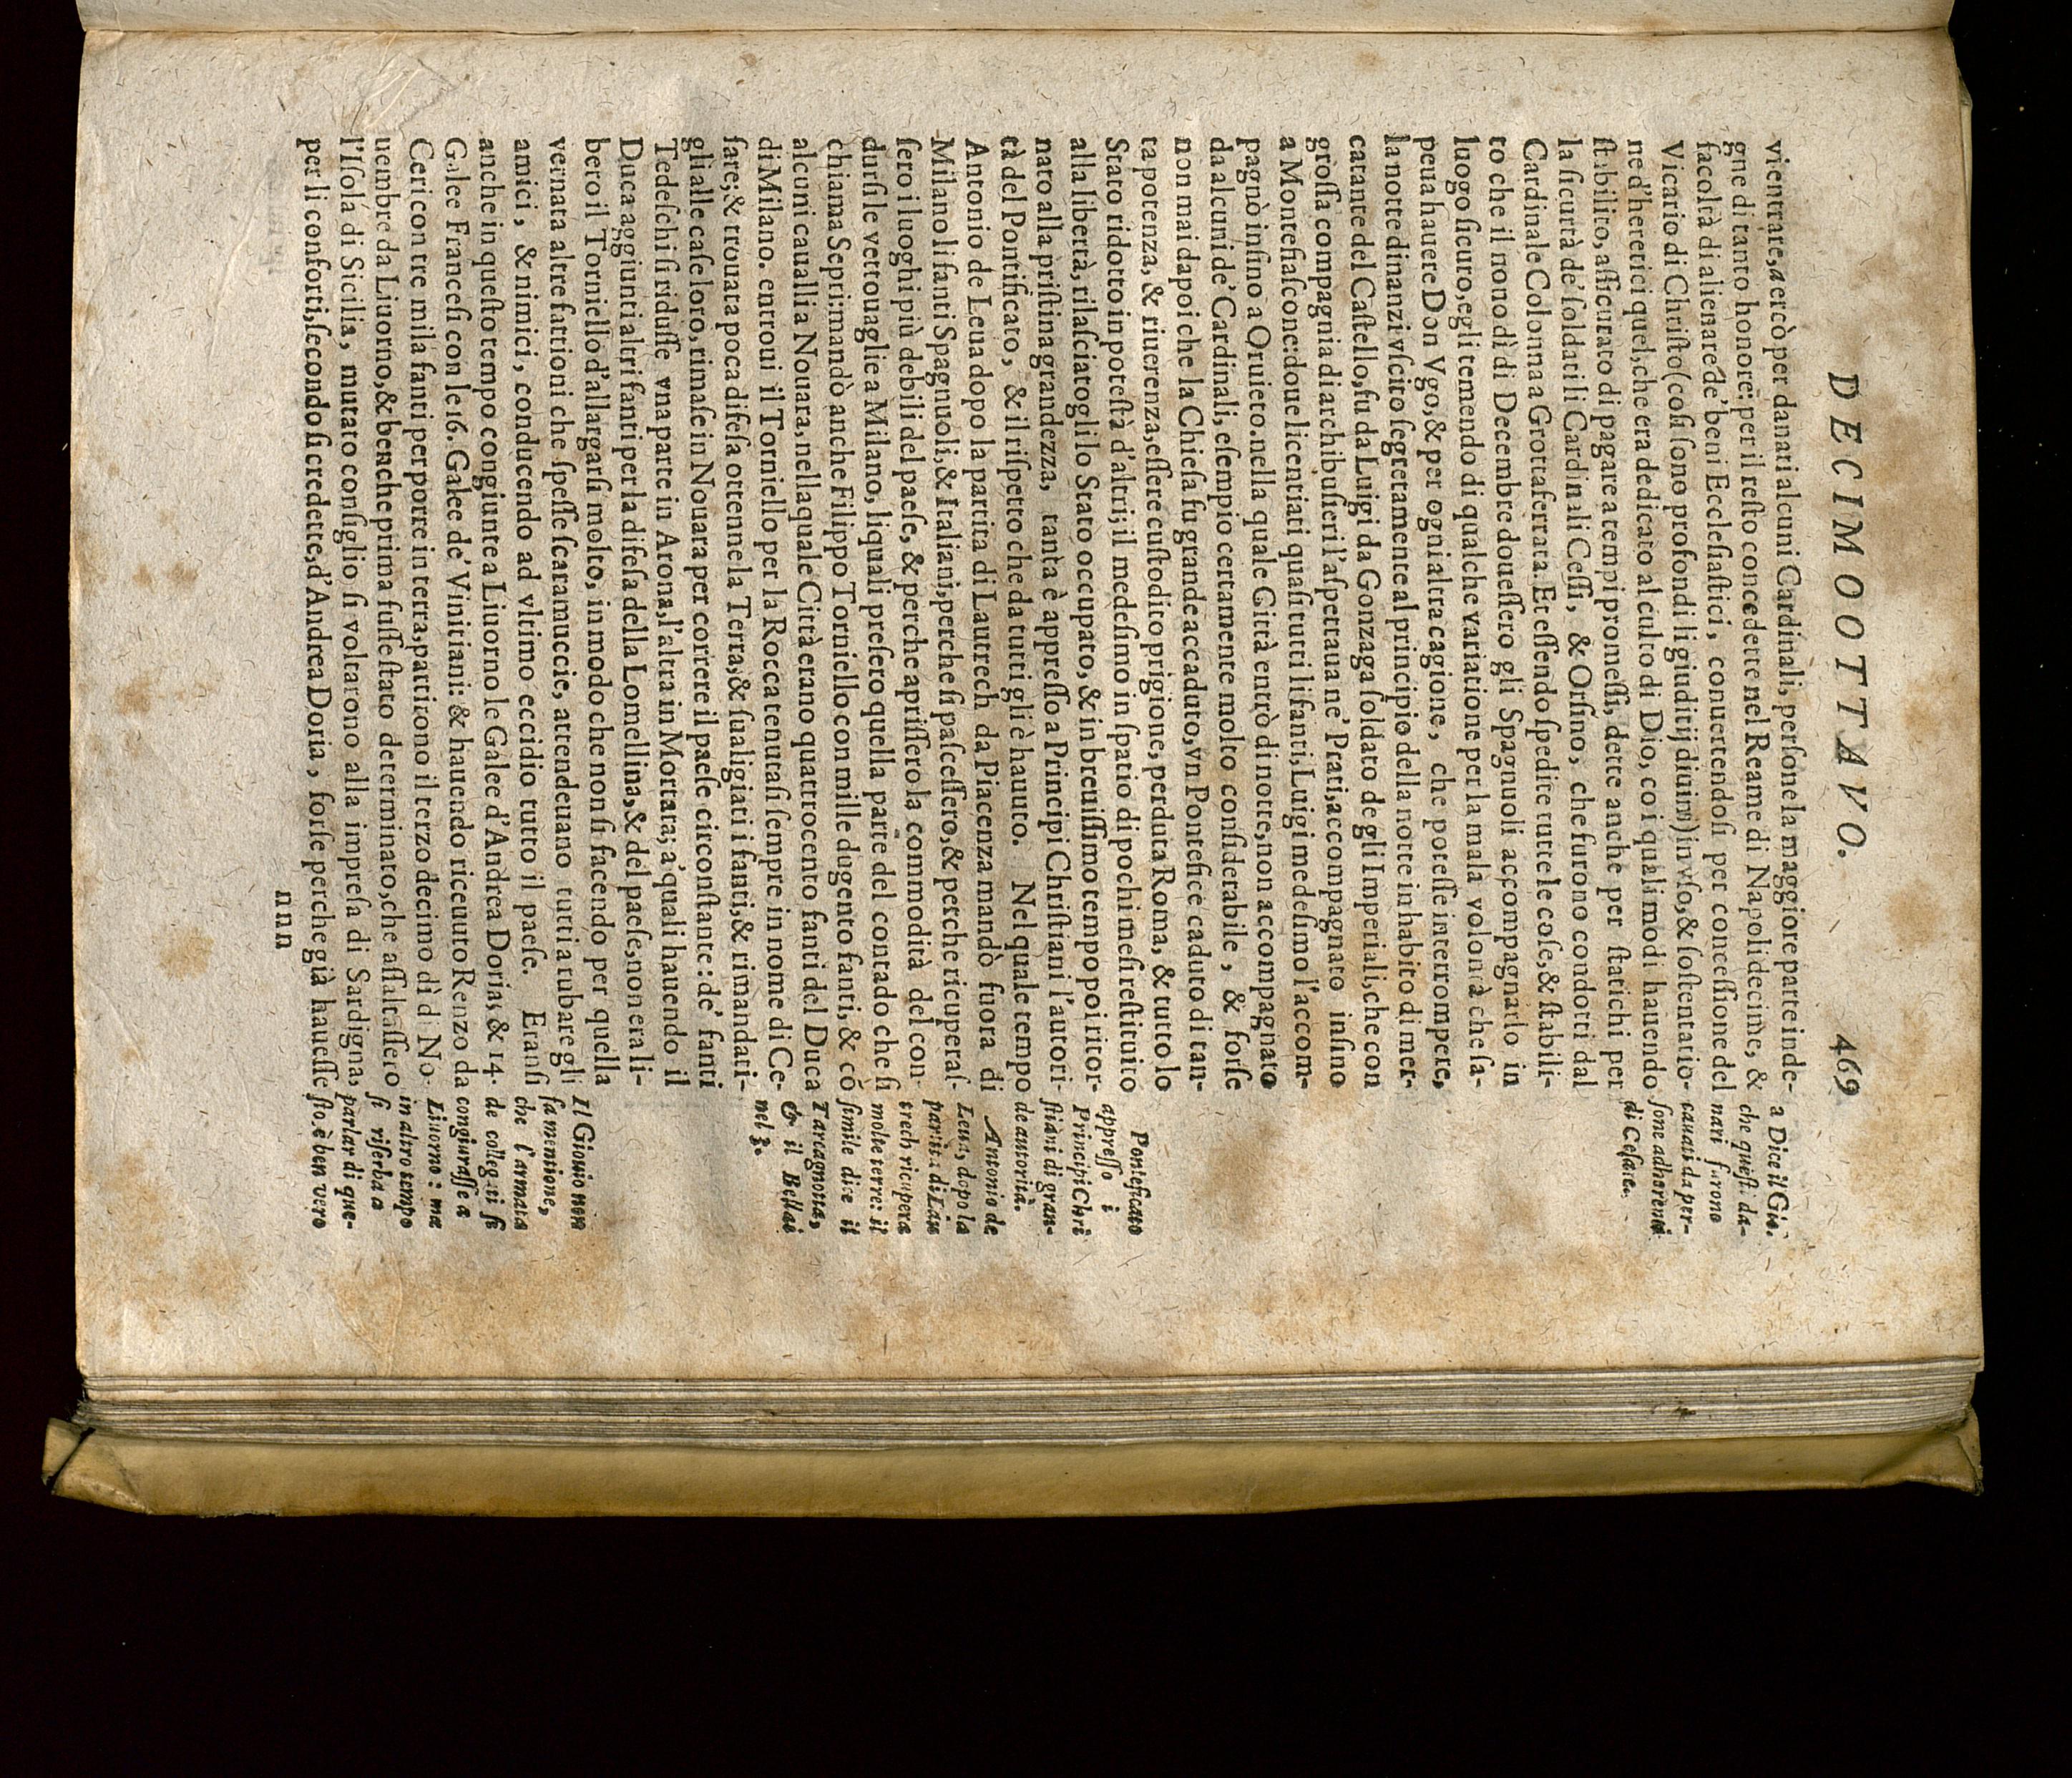 DECIMOOTTAVO. 469
vi entrare, a creò per danari alcuni Cardinali, persone la maggiore parte inde-
gne di tanto honore: per il resto concedette nel Reame di Napoli decime, &
facoltà di alienare de' beni Ecclesiastici, conuertendosi per concessione del
Vicario di Christo (cosi sono profondi li giuditij diuini) in vso, & sostentatio-
ne d'heretici quel, che era dedicato al culto di Dio, co i quali modi hauendo
stabilito, assicurato di pagare a tempi promessi, dette anche per statichi per
la sicurtà de' soldati li Cardinali Cessi, & Orsino, che furono condotti dal
Cardinale Colonna a Grottaferrata. Et essendo spedite tutte le cose, & stabili-
to che il nono dì di Decembre douessero gli Spagnuoli accompagnarlo in
luogo sicuro, egli temendo di qualche variatione per la mala volontà che sa-
peua hauere Don Vgo, & per ogni altra cagione, che potesse interrompere,
la notte dinanzi vscito segretamente al principio della notte in habito di mer-
catante del Castello, fu da Luigi da Gonzaga soldato de gli Imperiali, che con
grossa compagnia di archibusieri l'aspettaua ne' Prati, accompagnato insino
a Montefiascone: doue licentiati quasi tutti li fanti, Luigi medesimo l'accom-
pagnò insino a Oruieto. nella quale Città entrò di notte, non accompagnato
da alcuni de' Cardinali, esempio certamente molto considerabile, & forse
non mai dapoi che la Chiesa fu grande accaduto, vn Pontefice caduto di tan-
ta potenza, & riuerenza, essere custodito prigione, perduta Roma, & tutto lo
Stato ridotto in potestà d'altri; il medesimo in spatio di pochi mesi restituito
alla libertà, rilasciatogli lo Stato occupato, & in breuissimo tempo poi ritor-
nato alla pristina grandezza, tanta è appresso a Principi Christiani l'autori-
tà del Pontificato, & il rispetto che da tutti gli è hauuto. Nel quale tempo
Antonio de Leua dopo la partita di Lautrech da Piacenza mandò fuora di
Milano li fanti Spagnuoli, & Italiani, perche si pascessero, & perche ricuperas-
sero i luoghi più debili del paese, & perche aprissero la commodità del con-
dursi le vettouaglie a Milano, li quali presero quella parte del contado che si
chiama Sepri: mandò anche Filippo Torniello con mille dugento fanti, & cõ
alcuni caualli a Nouara, nella quale Città erano quattrocento fanti del Duca
di Milano. entroui il Torniello per la Rocca tenutasi sempre in nome di Ce-
sare; & trouata poca difesa ottenne la Terra, & sualigiati i fanti, & rimandati-
gli alle case loro, rimase in Nouara per correre il paese circonstante: de' fanti
Tedeschi si ridusse vna parte in Arona, l'altra in Mortara; a' quali hauendo il
Duca aggiunti altri fanti per la difesa della Lomellina, & del paese, non era li-
bero il Torniello d'allargarsi molto, in modo che non si facendo per quella
vernata altre fattioni che spesse scaramuccie, attendeuano tutti a rubare gli
amici, & nimici, conducendo ad vltimo eccidio tutto il paese. Eransi
anche in questo tempo congiunte a Liuorno le Galee d'Andrea Doria, & 14.
Galee Francesi con le 16. Galee de' Vinitiani: & hauendo riceuuto Renzo da
Ceri con tre mila fanti per porre in terra, partirono il terzo decimo dì di No-
uembre da Liuorno, & benche prima fusse stato determinato, che assaltassero
l'Isola di Sicilia, mutato consiglio si voltarono alla impresa di Sardigna,
per li conforti, secondo si credette, d'Andrea Doria, forse perche già hauesse
nnn
a Dice il Gio.
che questi da-
nari furono
cauati da per-
sone adherenti
di Cesare.
Ponteficato
appresso i
Principi Chri
stiani di gran-
de autorità.
Antonio de
Leua, dopo la
partita di Lau
trech ricupera
molte terre: il
simile dice il
Tarcagnotta,
& il Bellai
nel 3.
Il Giouio non
fa mentione,
che l'armata
de collegati si
congiurasse a
Liuorno: ma
in altro tempo
si riserba a
parlar di que-
sto. è ben vero